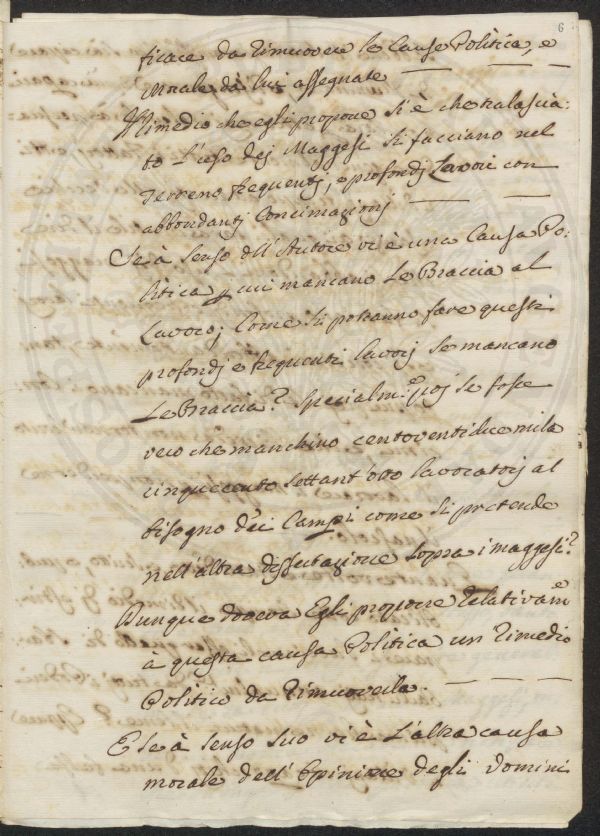 6
ficace da rimuovere le Cause Politica, e
Morale da lui assegnate
Il rimedio che egli propone si è che tralascia:
to l'uso dej Maggesi si facciano nel
Terreno frequentj, e profondj Lavori con
abbondantj Concimazionj
Se à senso dll'Autore vi è una Causa Po:
litica p cui mancano le Braccia al
Lavoro; Come si potranno fare questi
profondj e frequenti lavorj se mancano
Le Braccia? Specialm.e poj se fosse
vero che manchino centoventidue mila
cinquecento settant'otto lavoratorj al
bisogno dei Campi come si pretende
nell'altra dissertazione sopra i maggesi?
Dunque doveva Egli proporre relativam.e
à questa causa Politica un rimedio
Politico da rimuoverla.
E se à senso suo vi è l'altra causa
morale dell'Opinione degli Uomini